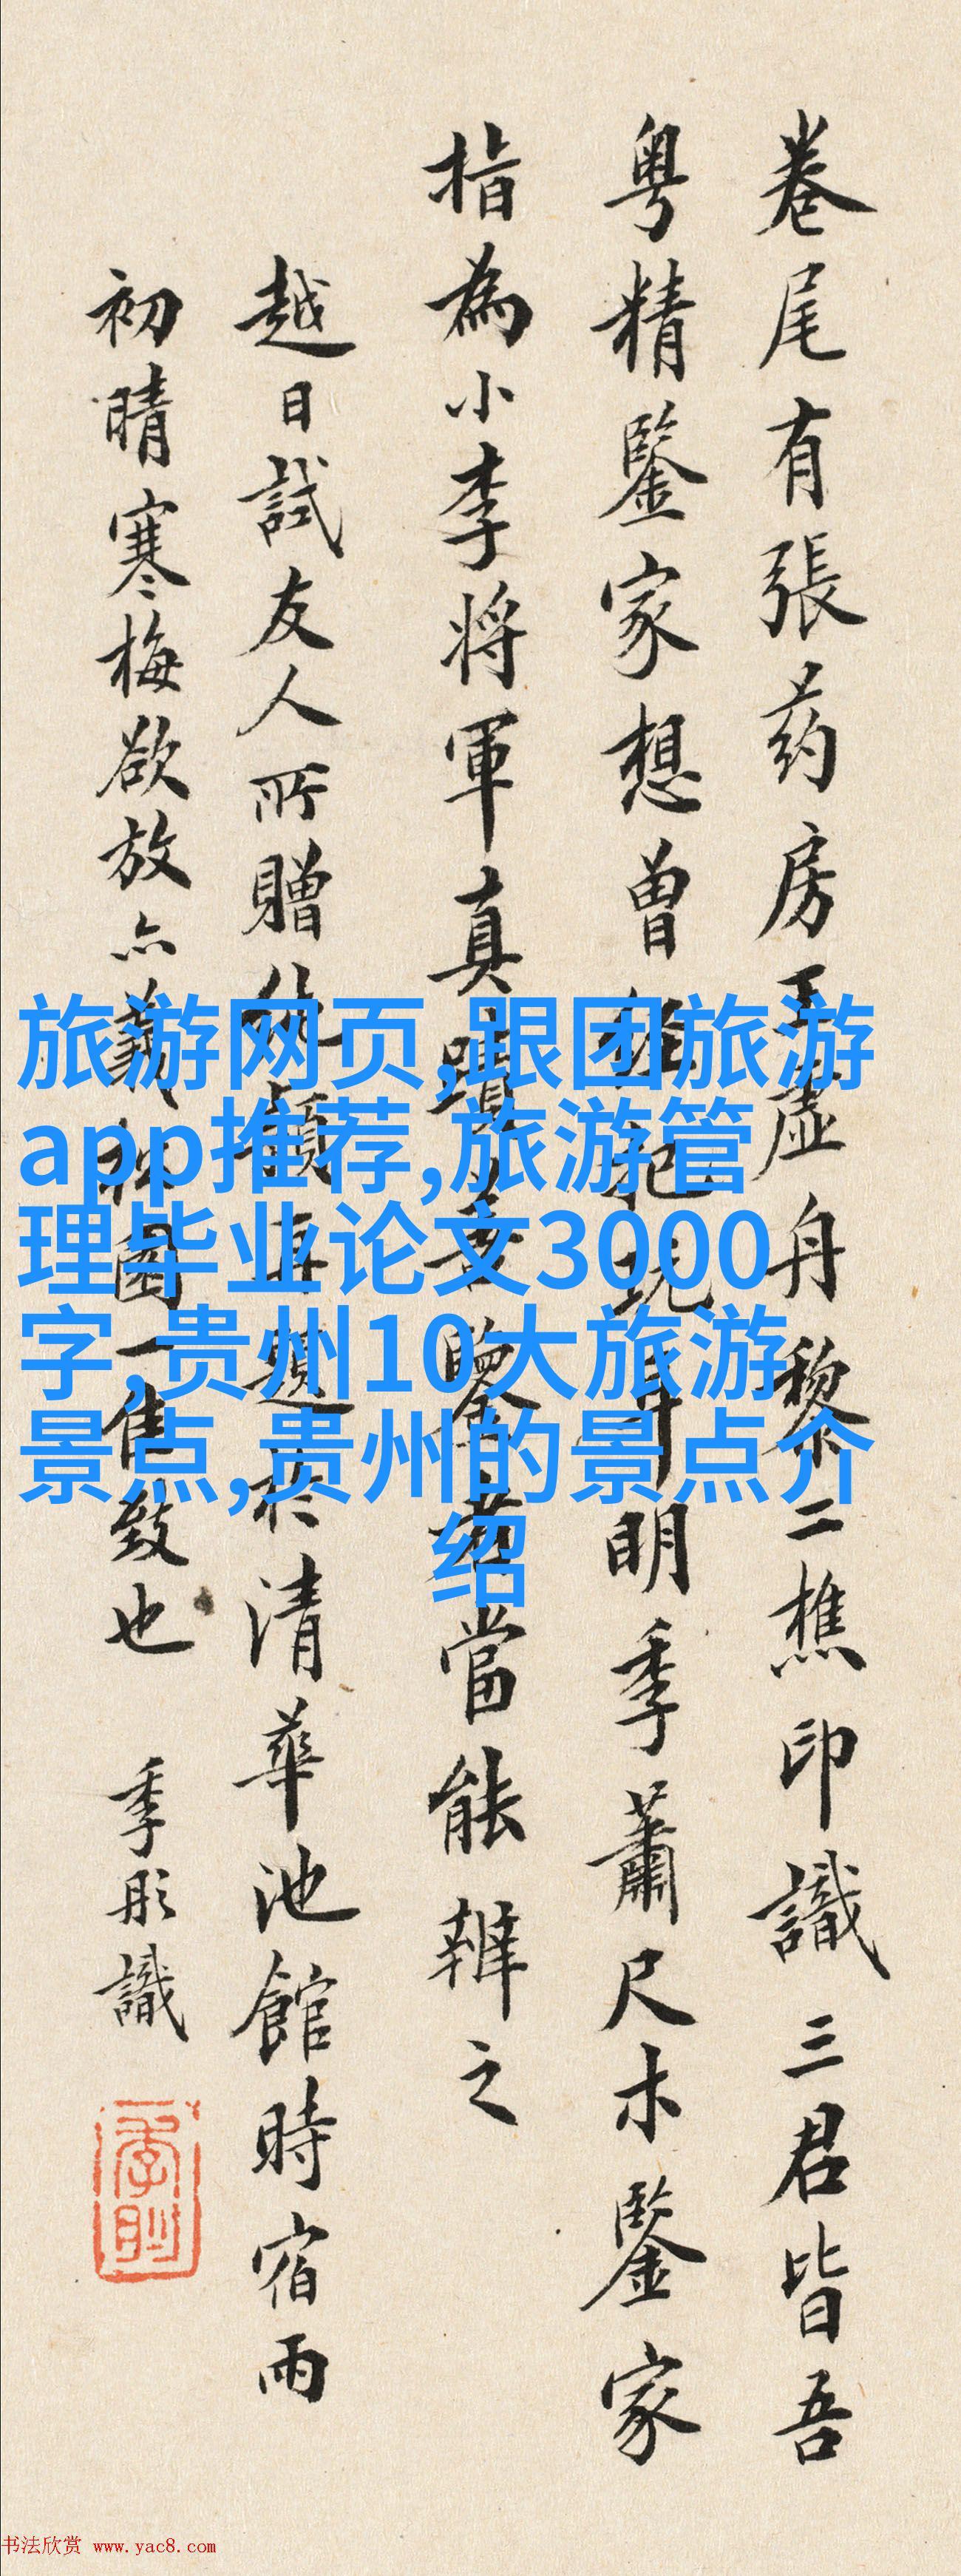 卷尾有張药房王虛舟黎二樵印識三君皆吾
粤精鑒家想曾經把玩耳明季蕭尺木鑒家
指為小李將軍真蹟善鑒者當能辨之
越日試友人所贈再題於清華池館時宿雨
初晴寒梅欲放亦園一隹致也 季彤識
旅游网页,跟团旅游
app推荐,旅游管
理毕业论文3000
字,贵州10大旅游
景点,贵州的景点介
绍
书法欣赏 www.yac8.com